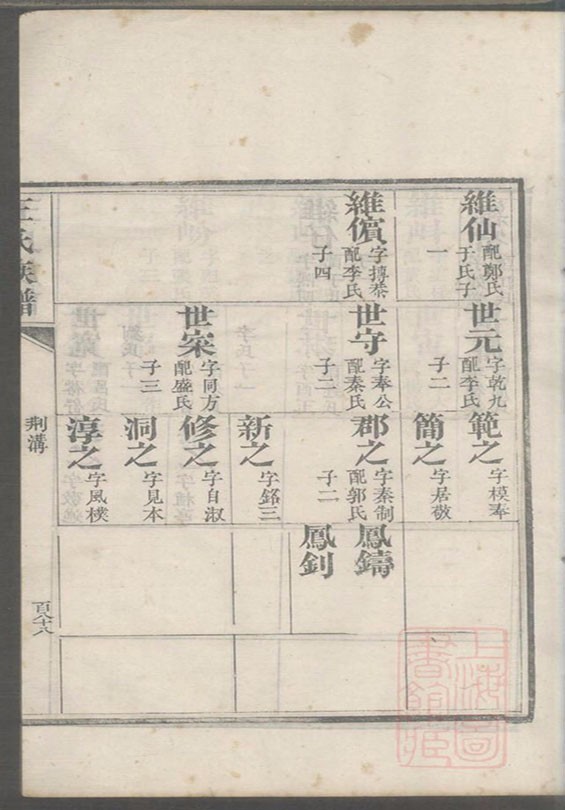 維仙
配鄭氏
于氏子
一
維儐
字摶泰
配李氏
子四
世元
字乾九
配李氏
子二
世守
字奉公
配秦氏
子二
世寀
字同方
配盛氏
子三
範之
字模奉
簡之
字居敬
郡之
字秦制
配郭氏
子二
新之
字銘三
修之
字自淑
洞之
字見本
淳之
字風樸
鳳鑄
鳳釗
王氏族譜
荆溝
百八十八
上海圖
書館藏